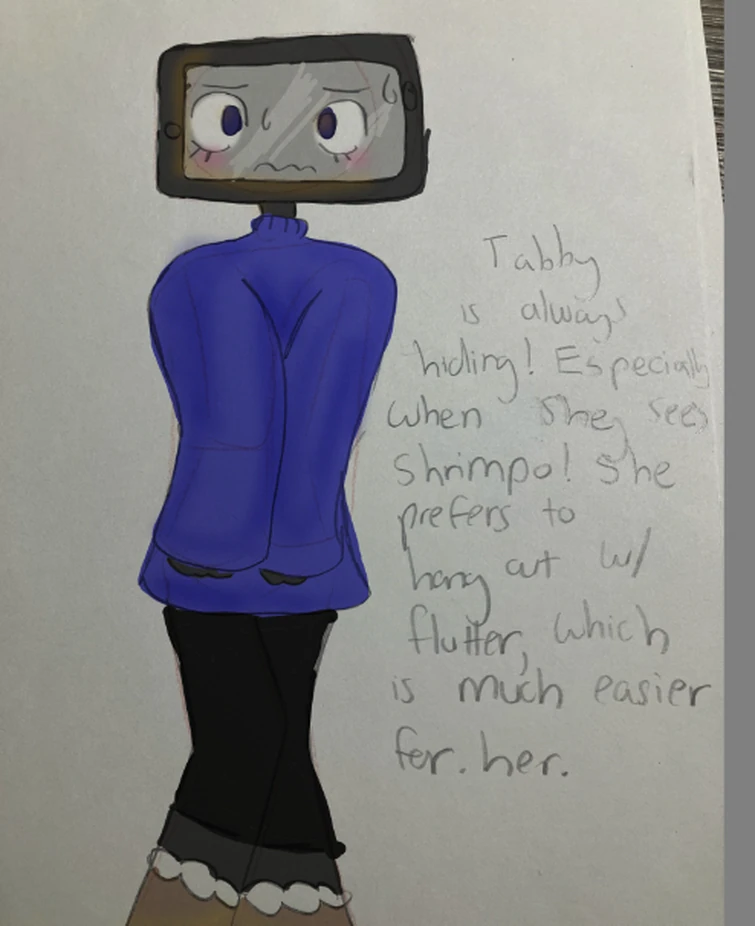 Tabby
is always
hiding! Especially
when she sees
Shrimpo! She
prefers to
hang out w/
flutter, which
is much easier
for. her.